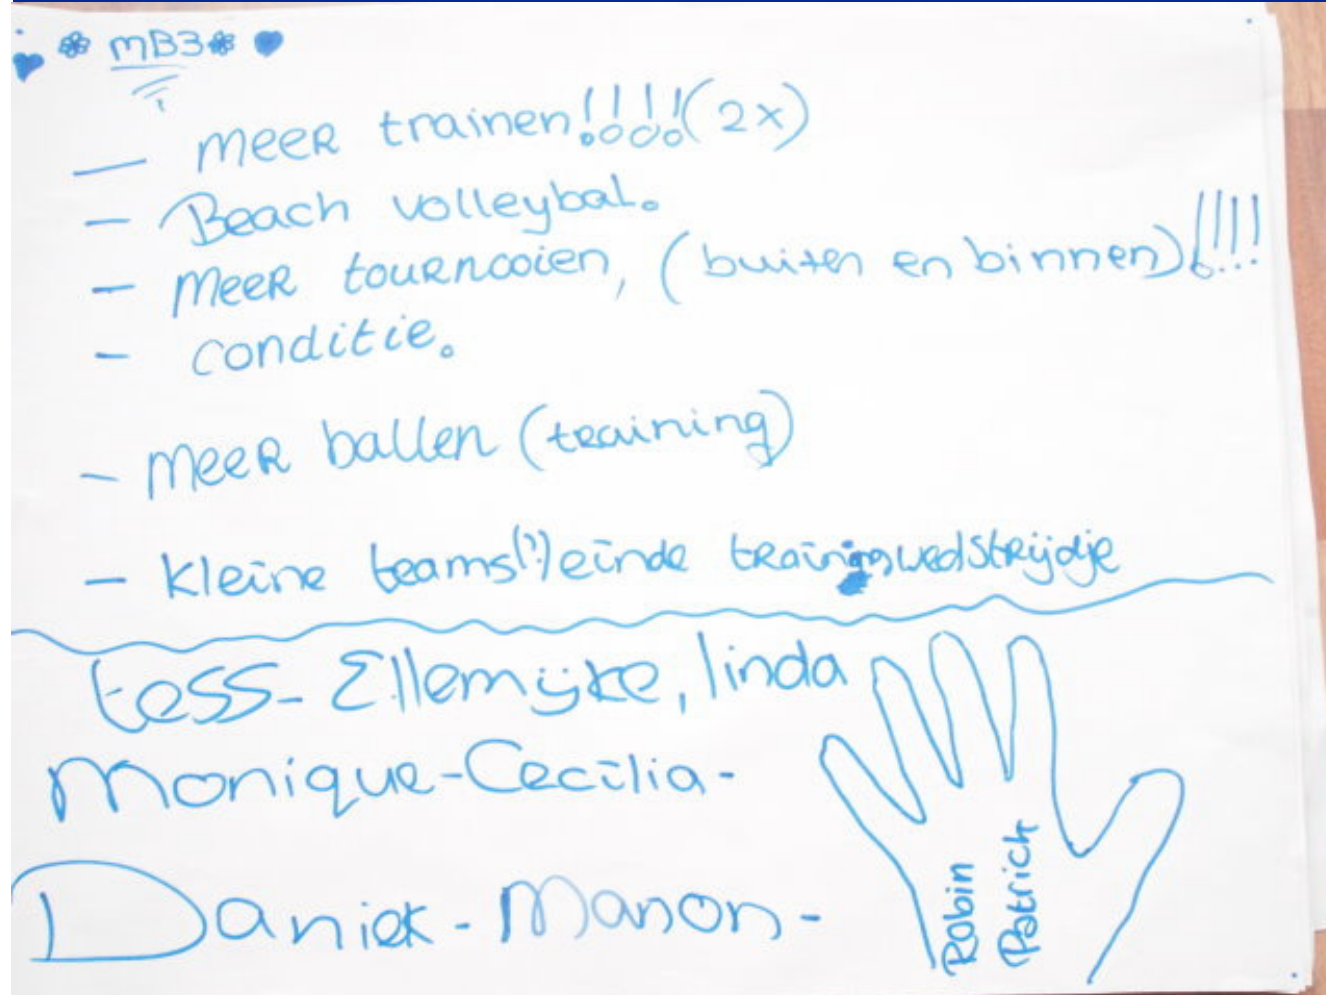 MB3
- Meer trainen!!!! (2x)
- Beach volleybal.
- Meer tournooien, (buiten en binnen)!!!!
- conditie.
- Meer ballen (training)
- kleine teams(!) einde trainingswedstrijdje
tess - Ellemijke, linda
Monique - Cecilia -
Daniek - Manon -
Robin
Patrick